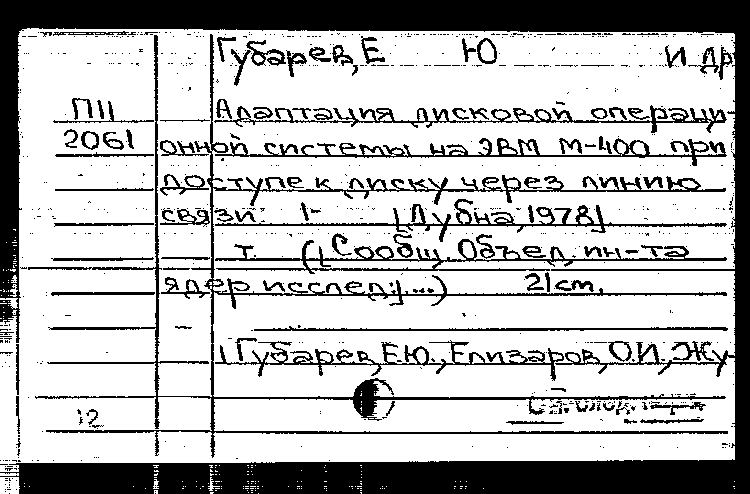 Губарев, Е Ю И др
П11 Адаптация дисковой операци-
2061 онной системы на ЭВМ М-400 при
доступе к диску через линию
связи. 1- [Дубна, 1978].
т. ([Сообщ. Объед. ин-та
ядер исслед.; ...) 21 cm.
–
1 Губарев, Е.Ю., Елизаров, О.И., Жу-
12 след.